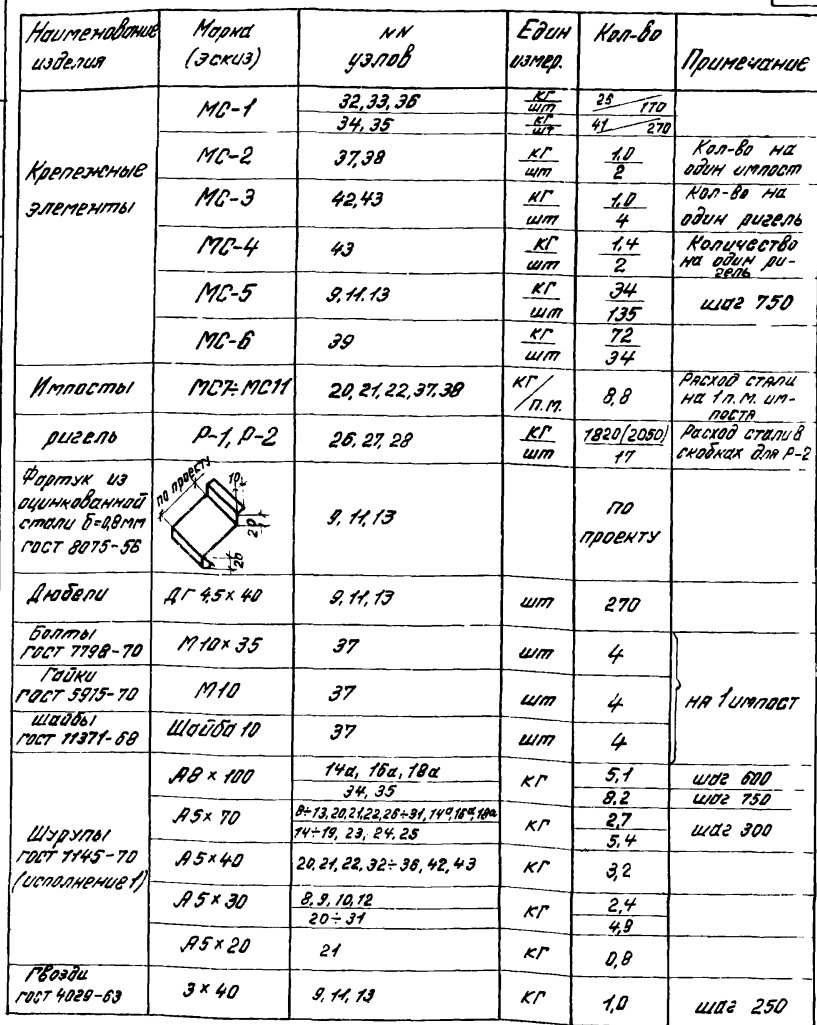 Наименование изделия | Марка (эскиз) | NN узлов | Един измер. | Кол-во | Примечание
Крепежные элементы | МС-1 | 32,33,36 | кг/шт | 25/170
34,35 | кг/шт | 41/270
МС-2 | 37,38 | кг/шт | 1,0/2 | Кол-во на один импост
МС-3 | 42,43 | кг/шт | 1,0/4 | Кол-во на один ригель
МС-4 | 43 | кг/шт | 1,4/2 | Количество на один ригель
МС-5 | 9.11.13 | кг/шт | 34/135 | шаг 750
МС-6 | 39 | кг/шт | 72/34
Импосты | МС7÷МС11 | 20,21,22,37,38 | кг/п.м. | 8,8 | Расход стали на 1 п.м. импоста
ригель | Р-1, Р-2 | 26, 27, 28 | кг/шт | 1820(2050)/17 | Расход стали в скобках для Р-2
Фартук из оцинкованной стали δ=0,8мм ГОСТ 8075-56 | по проекту 10 20 20 | 9, 11, 13 | по проекту
Дюбели | ДГ 4,5×40 | 9, 11, 13 | шт | 270
Болты ГОСТ 7798-70 | М10×35 | 37 | шт | 4
Гайки ГОСТ 5915-70 | М10 | 37 | шт | 4 | на 1 импост
шайбы ГОСТ 11371-68 | Шайба 10 | 37 | шт | 4
Шурупы ГОСТ 1145-70 (исполнение 1) | А8×100 | 14а, 16а, 18а | кг | 5,1 | шаг 600
34, 35 | 8,2 | шаг 750
А5×70 | 8÷13,20,21,22,26÷31,14а,16а,18а | кг | 2,7 | шаг 300
14÷19, 23, 24, 25 | 5,4
А5×40 | 20,21,22,32÷36,42,43 | кг | 3,2
А5×30 | 8,9,10,12 | кг | 2,4
20÷31 | 4,9
А5×20 | 21 | кг | 0,8
Гвозди ГОСТ 4029-63 | 3×40 | 9, 11, 13 | кг | 1,0 | шаг 250